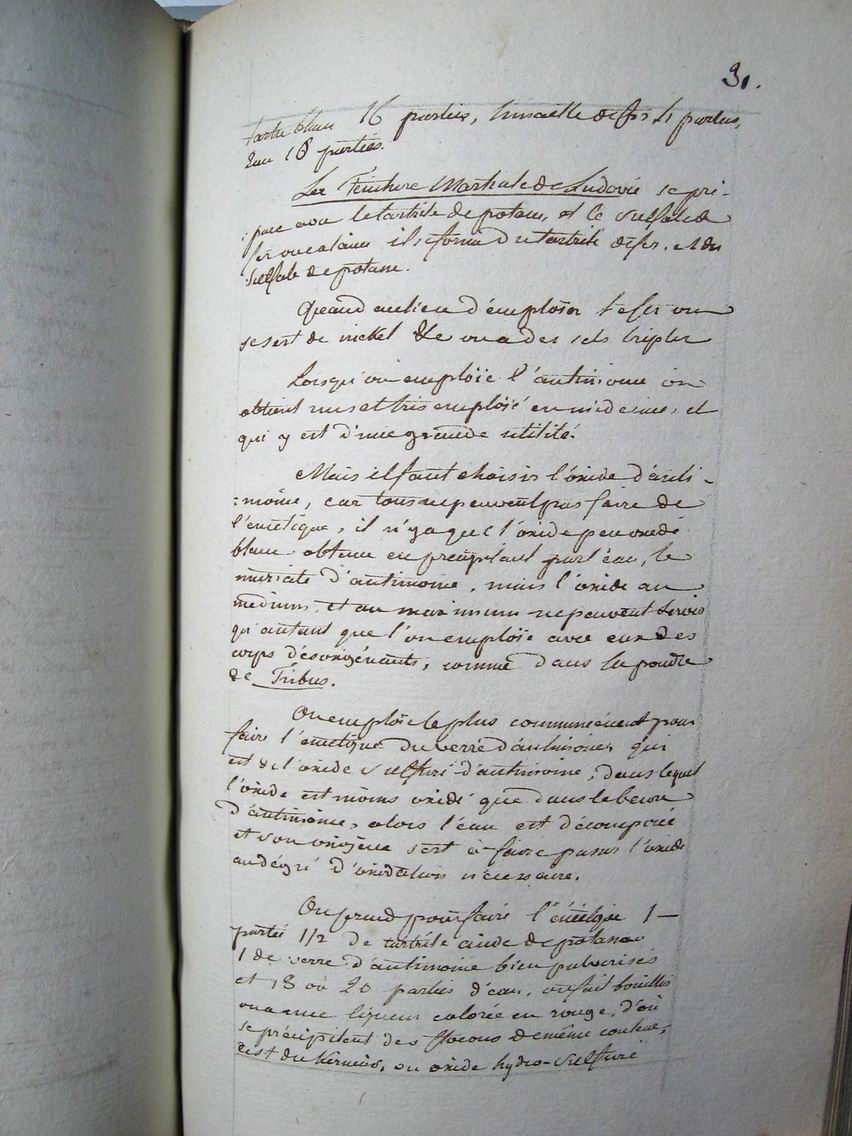 31.
tartre blanc 16 parties, limaille de fer 4 parties,
Eau 18 parties.
La Teinture Martiale de Ludovic se pré-
:pare avec le tartrite de potasse, et le sulfate de
fer ou calciné il se forme du tartrite de fer. et du
sulfate de potasse.
Quand au lieu d'emploïer le fer on
se sert de nickel &c on a des sels triples
Lorsqu'on emploïe l'antimoine on
obtient un sel très emploïé en médecine, et
qui y est d'une grande utilité.
Mais il faut choisir l'oxide d'anti-
:moine, car tous ne peuvent pas faire de
l'émétique, il n'y a que l'oxide peu oxidé
blanc obtenu en précipitant par l'eau, le
muriate d'antimoine, mais l'oxide au
medium, et au maximum ne peuvent servir
qu'autant que l'on emploïe avec eux des
corps désoxigénants, comme dans la poudre
de Tribus.
On emploïe le plus communément pour
faire l'émétique du verre d'antimoine, qui
est de l'oxide sulfuré d'antimoine, dans lequel
l'oxide est moins oxidé que dans le beurre
d'antimoine, alors l'eau est décomposée
et son oxigène sert à faire passer l'oxide
au dégré d'oxidation nécessaire.
On prend pour faire l'émétique 1 —
partie 1/2 de tartrite acide de potasse
1 de verre d'antimoine bien pulverisés
et 18 ou 20 parties d'eau, on fait bouillir
on a une liqueur colorée en rouge, d'où
se précipitent des flocons de même couleur,
c'est du Kermès, ou oxide hydro-sulfuré